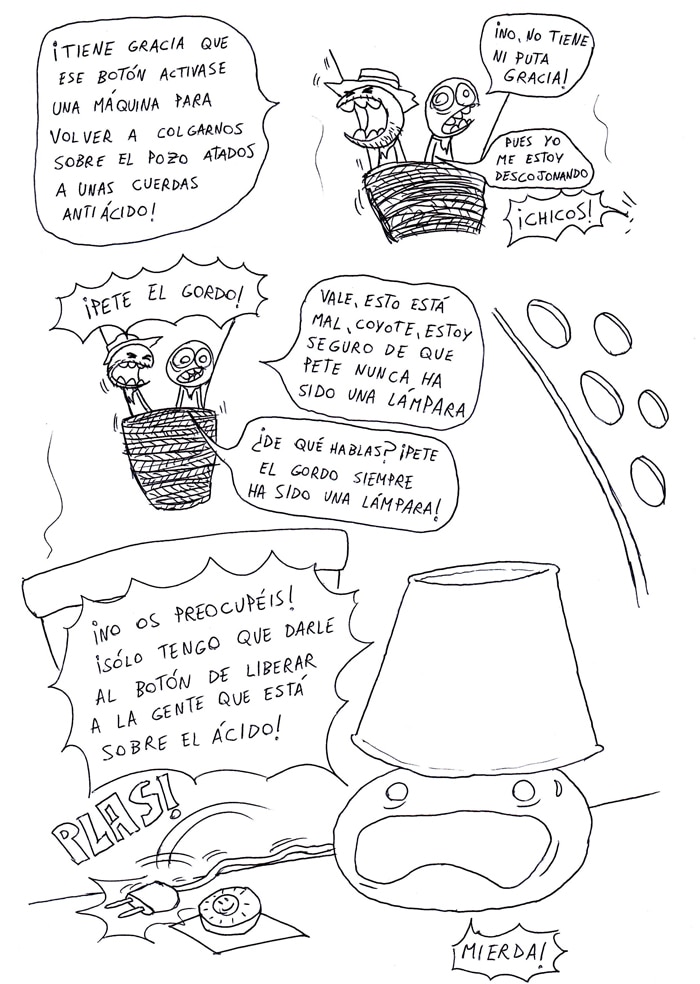 ¡TIENE GRACIA QUE
ESE BOTÓN ACTIVASE
UNA MÁQUINA PARA
VOLVER A COLGARNOS
SOBRE EL POZO ATADOS
A UNAS CUERDAS
ANTIÁCIDO!
¡NO, NO TIENE
NI PUTA
GRACIA!
PUES YO
ME ESTOY
DESCOJONANDO
¡CHICOS!
¡PETE EL GORDO!
VALE, ESTO ESTÁ
MAL, COYOTE, ESTOY
SEGURO DE QUE
PETE NUNCA HA
SIDO UNA LÁMPARA
¿DE QUÉ HABLAS? ¡PETE
EL GORDO SIEMPRE
HA SIDO UNA LÁMPARA!
¡NO OS PREOCUPÉIS!
¡SÓLO TENGO QUE DARLE
AL BOTÓN DE LIBERAR
A LA GENTE QUE ESTÁ
SOBRE EL ÁCIDO!
PLAS!
MIERDA!